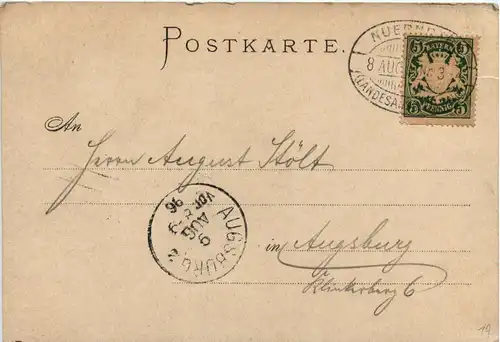 POSTKARTE.
NUERNB
8 AUG
(LANDESA
BAYERN
5 5
PFENNIG
5 5
An
Herrn August Stölt
AUGSBURG 2
9
AUG
Vor
96
in Augsburg
Klinkerberg 6
19